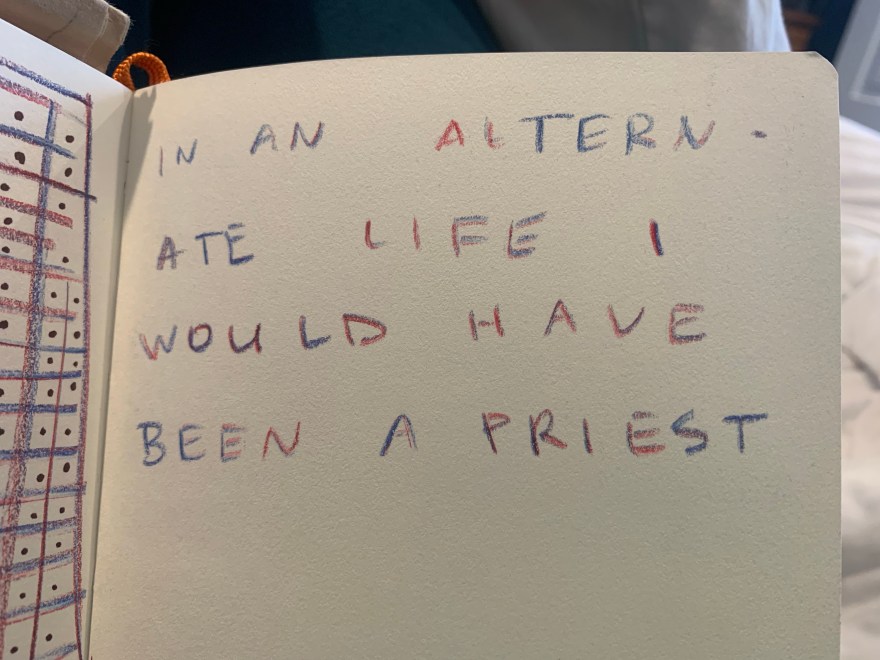 IN AN ALTERN-
ATE LIFE I
WOULD HAVE
BEEN A PRIEST